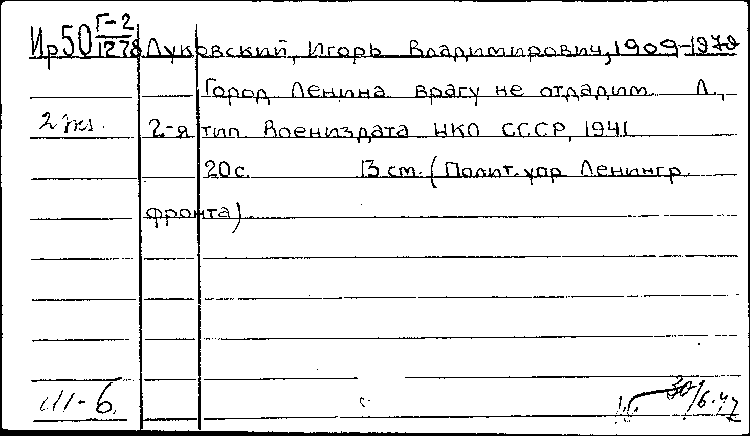 Ир50 Г-2/1278 Луковский, Игорь Владимирович, 1909-1979
Город Ленина врагу не отдадим Л.,
2 экз. 2-я тип. Воениздата НКО СССР, 1941
20 с. 13 см. (Полит. упр Ленингр.
фронта)
III-6. 30/6.47